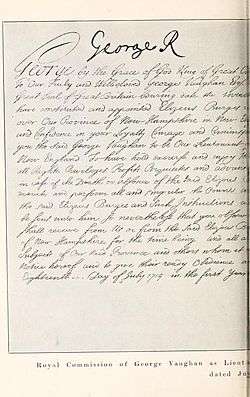 George R
George by the Grace of God King of Great
To Our Trusty and Welbeloved George Vaughan
Great Seal of Great Britain bearing date the
have constituted and appointed Elizeus Burges
over Our Province of New Hampshire in New
and Confidence in your Loyalty Courage and
you the said George Vaughan to be Our Lieutenant
New England To have hold exercise and enjoy
all Rights Priviledges Profits Perquisites and
in case of the Death or absence of the said Elizeus
and perform all and
the said Elizeus Burges and Such Instructions
be sent unto him So nevertheless that you
shall receive from Us or from the said Elizeus
of New Hampshire for the time being and all
Subjects of Our said Province and others whom
Notice hereof and to give their ready Obedience
Eighteenth Day of July 1715 in the first Year
Royal Commission of George Vaughan as
dated